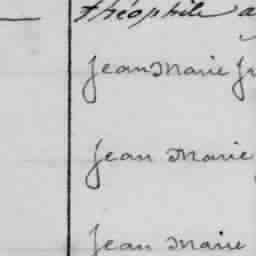 théophile
Jean Marie
Jean Marie
Jean Marie